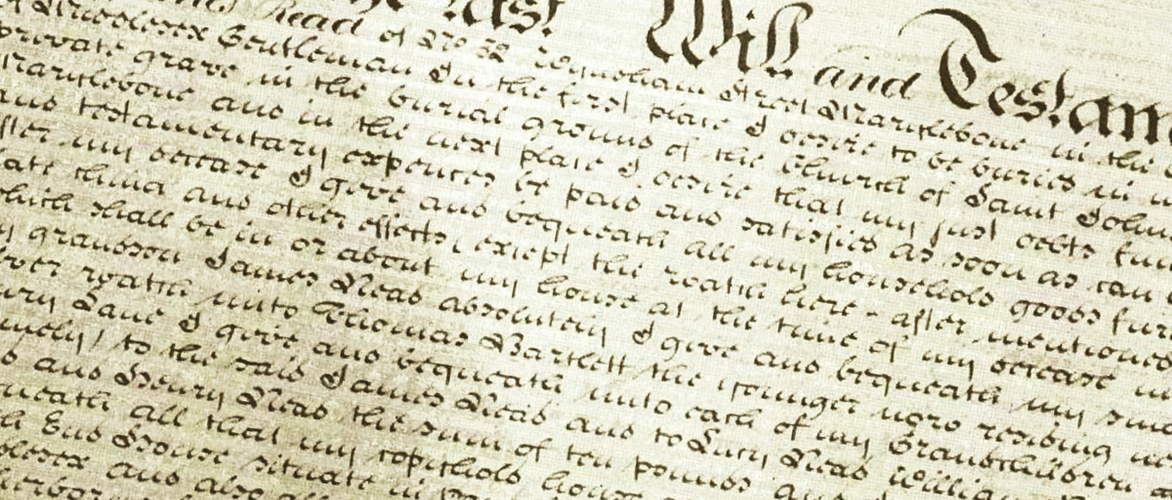 The last Will and Testam
Read of No 22 Street Marylebone in the
of Middlesex Gentleman In the first place I desire to be buried in
private grave in the burial ground of the Church of Saint John
Marylebone and in the next place I desire that my just debts fun
and testamentary expences be paid and satisfied as soon as can
after my decease I give and bequeath all my household goods fur
late china and other effects, except the watch here-after mentioned
which shall be in or about my house at the time of my decease un
my grandson James Read absolutely I give and bequeath my
watch unto Thomas Bartlett the younger now residing
ury Lane I give and bequeath unto each of my Grandchildren
namely) to the said James Read and to Lucy Read Willia
and Henry Read the sum of ten pounds and
queath all that my copyhold house
h End House situate in
dlesex and also all